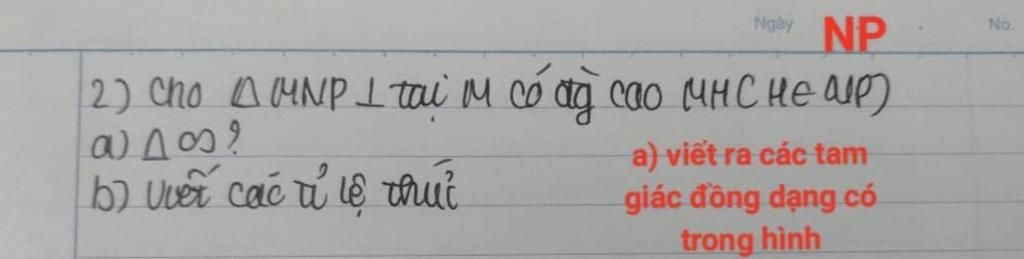 Ngày
NP
No.
2) Cho Δ MNP ⊥ tại M có đg cao MH ( H ∈ NP)
a) Δ ∽ ?
b) Viết các tỉ lệ thức
a) viết ra các tam
giác đồng dạng có
trong hình